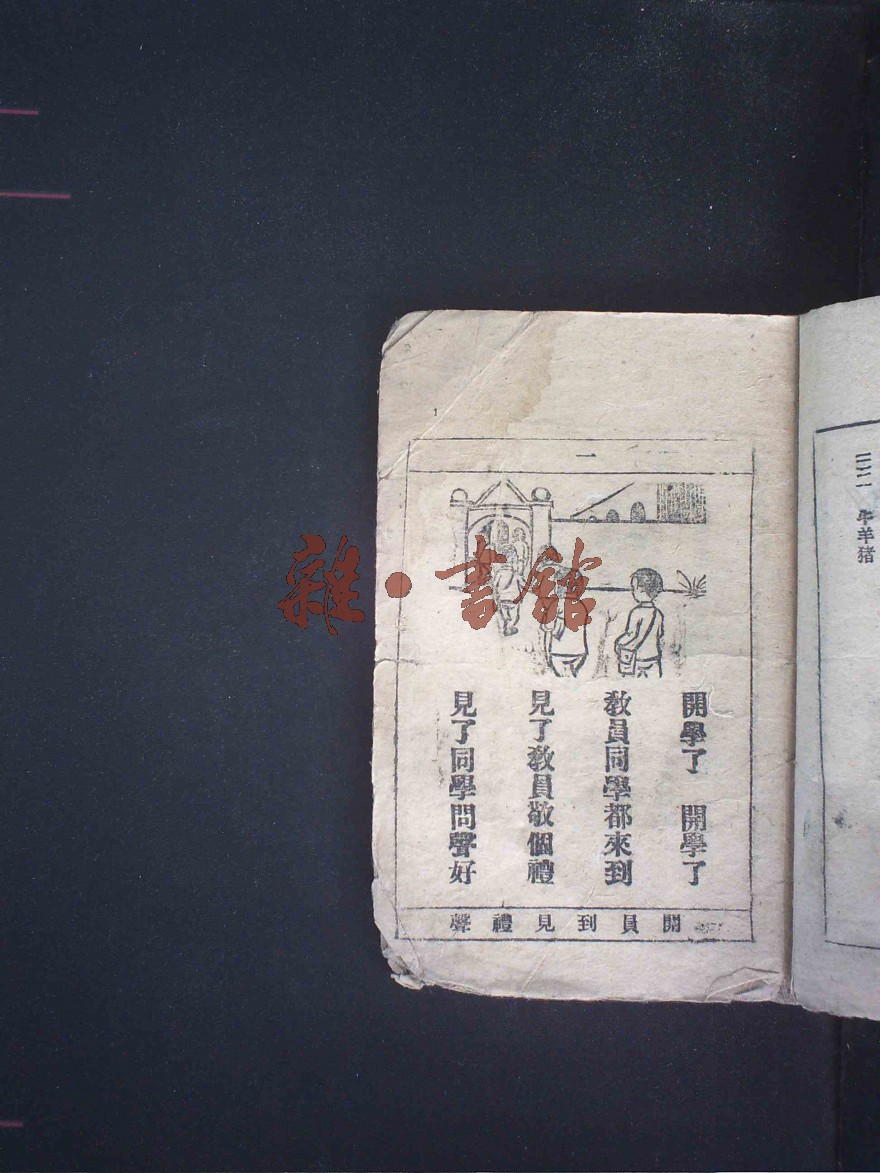 三二一 牛羊猪
一
開學了 開學了
教員同學都來到
見了教員敬個禮
見了同學問聲好
開員到見禮聲
1
雜·書館